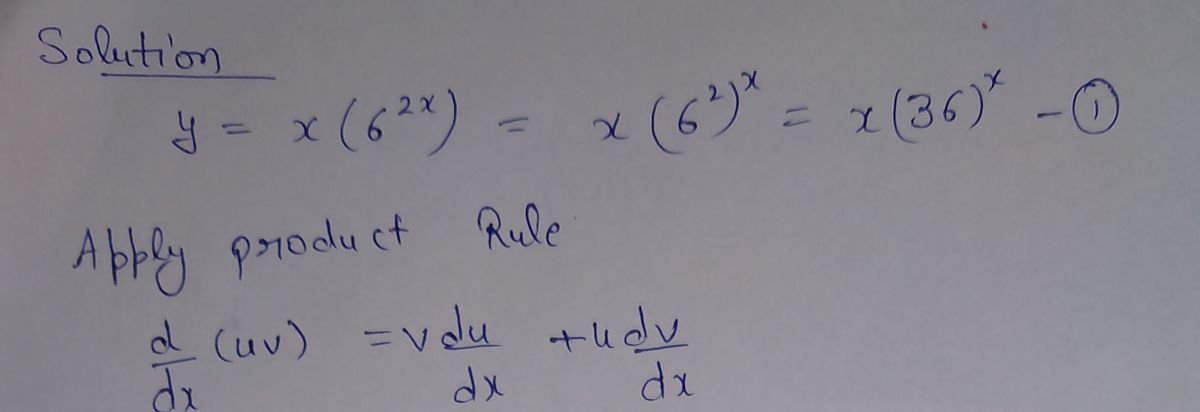 Solution
y = x(6^{2x}) = x(6^2)^x = x(36)^x - ①
Apply product Rule
d/dx (uv) = v du/dx + u dv/dx